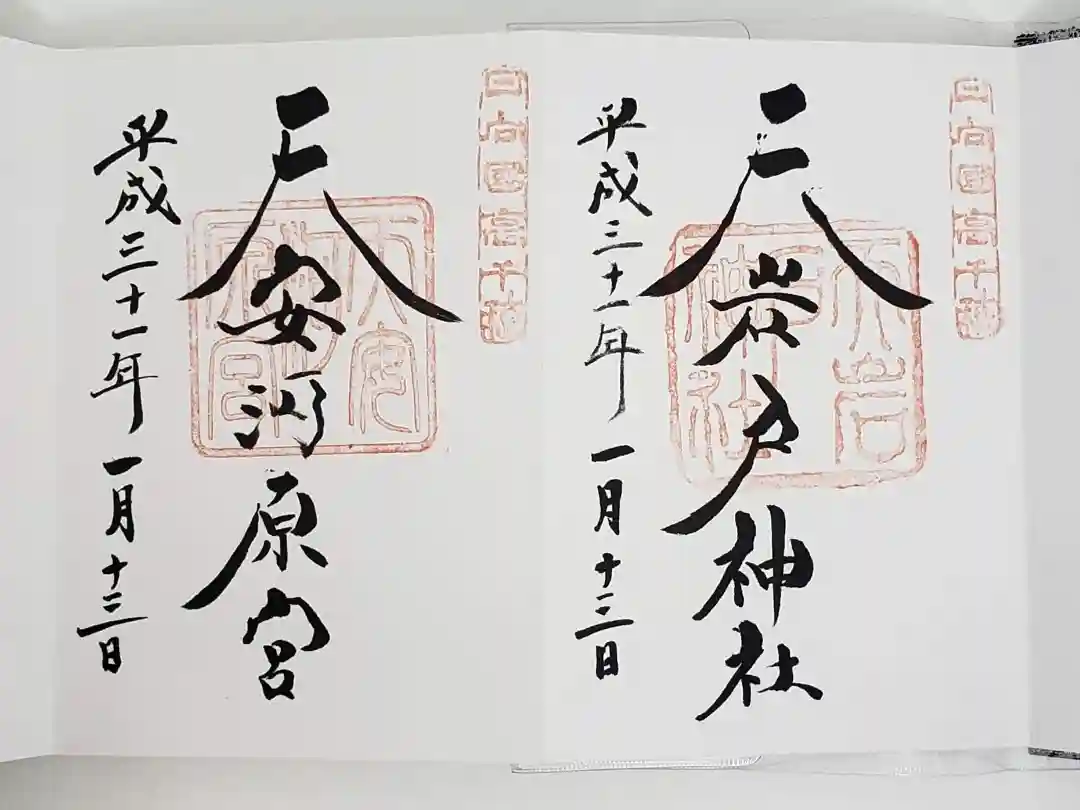 日向国高千穂
天岩戸神社
天岩戸神社
平成三十一年一月十三日
日向国高千穂
天安河原宮
天安河原宮
平成三十一年一月十三日